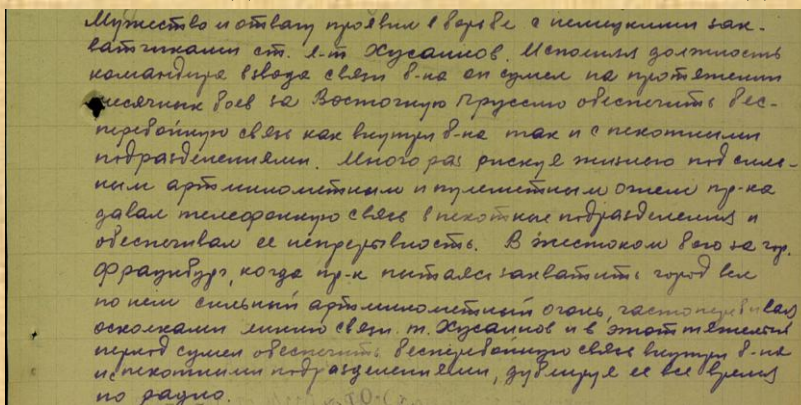 Мужество и отвагу проявил в борьбе с немецкими зах-
ватчиками ст. л-т Хусаинов. Исполняя должность
командира взвода связи б-на он сумел на протяжении
месячных боев за Восточную Пруссию обеспечить бес-
перебойную связь как внутри б-на так и с пехотными
подразделениями. Много раз рискуя жизнью под силь-
ным артминометным и пулеметным огнем пр-ка
давал телефонную связь в пехотные подразделения и
обеспечивал ее непрерывность. В жестоком бою за гор.
Фрауэнбург, когда пр-к пытаясь захватить город вел
по нем сильный артминометный огонь, часто перебивая
осколками линию связи. т. Хусаинов и в этот тяжелый
период сумел обеспечить бесперебойную связь внутри б-на
и с пехотными подразделениями, дублируя ее все время
по радио.